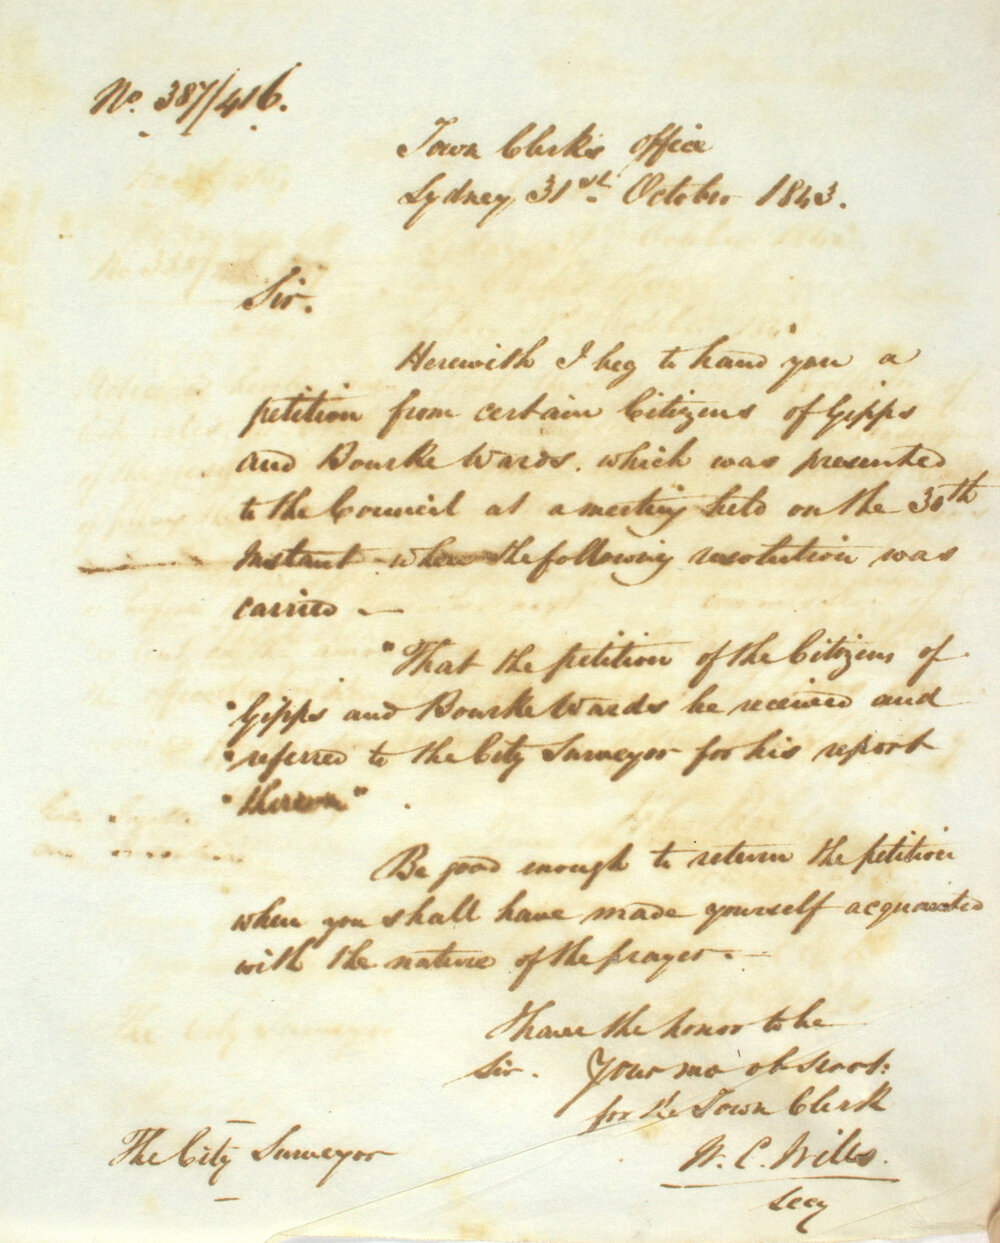 No. 387/416.
Town Clerk's Office
Sydney 31st October 1843.
Sir.
Herewith I beg to hand you a
petition from certain Citizens of Gipps
and Bourke Wards. which was presented
to the Council at a meeting held on the 30th
Instant when the following resolution was
carried —
"That the petition of the Citizens of
"Gipps and Bourke Wards be received and
"referred to the City Surveyor for his report
"thereon"
Be good enough to return the petition
when you shall have made yourself acquainted
with the nature of the prayer. —
I have the honor to be
Sir. Your mo obt Servt:
for the Town Clerk
The City Surveyor
W. C. Wills.
Secy